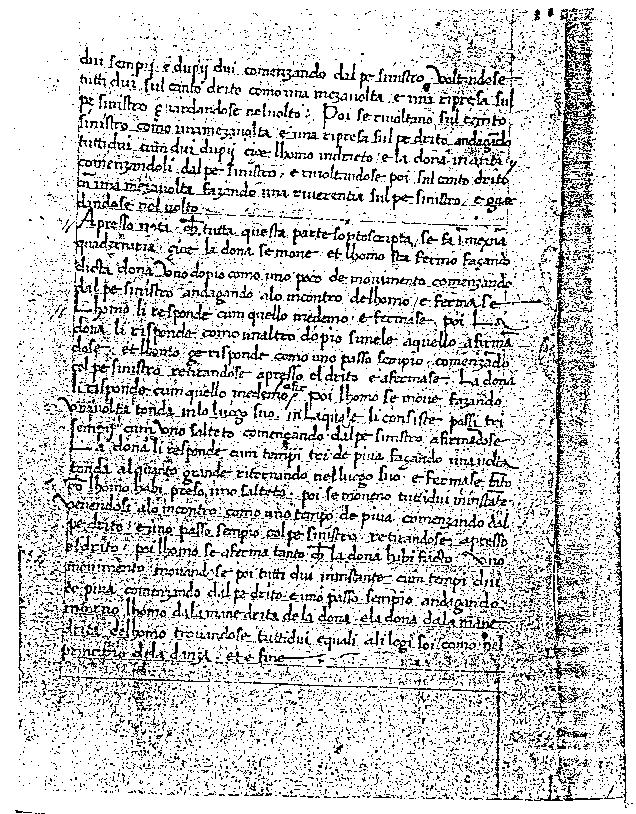 dui sempij e dupij dui comenzando dal pe sinistro voltandose
tutti dui sul canto drito como una mezavolta e una ripresa sul
pe sinistro guardandose nel volto. Poi se rivoltano sul canto
sinistro como una mezavolta e una ripresa sul pe drito andagādo
tutti dui cum dui dupij cioe lhomo indrieto e la dona inanti
comenzandoli dal pe sinistro e rivoltandose poi sul canto drito
cū una mezavolta fazando una riverentia sul pe sinistro e guar
dandose nel volto
Apresso nota ch tutta questa parte soptoscripta se fa ī mexura
quadernaria cioe la dona se move et lhomo sta fermo façando
dicta dona uno dopio como uno poco de movimento comenzando
dal pe sinistro andagando alo incontro delhomo e fermase
Lhomo li responde cum quello medemo e fermase poi La
dona li risponde como unaltro dopio simele a quello afirma
dose et lhomo ge risponde como uno passo sempio comenzādo
col pe sinistro retirandose apresso el drito e afermase La dona
li risponde cum quello medemo poi lhomo se move fazando
una volta tonda in lo luogo suo in la quale li consiste passi tri
sempij cum uno salteto comenzando dal pe sinistro afirmādose
La dona li responde cum tempi tri de piva façando una volta
tonda alquanto grande ritornando nel luogo suo e fermase
lhomo habi preso uno salteto poi se moveno tutti dui in instāte
venendose alo incontro como uno tempo de piva comenzando dal
pe drito e uno passo sempio col pe sinistro retirandose apresso
pe drito poi lhomo se aferma tanto ch la dona habi facto uno
movimento movandose poi tutti dui in instante cum tempi dui
de piva comenzando dal pe drito e uno passo sempio andagando
lhomo dala mane drita de la dona e la dona dala mane
drita delhomo trovandose tutti dui equali ali logi soi como nel
principio dela danza et e fine